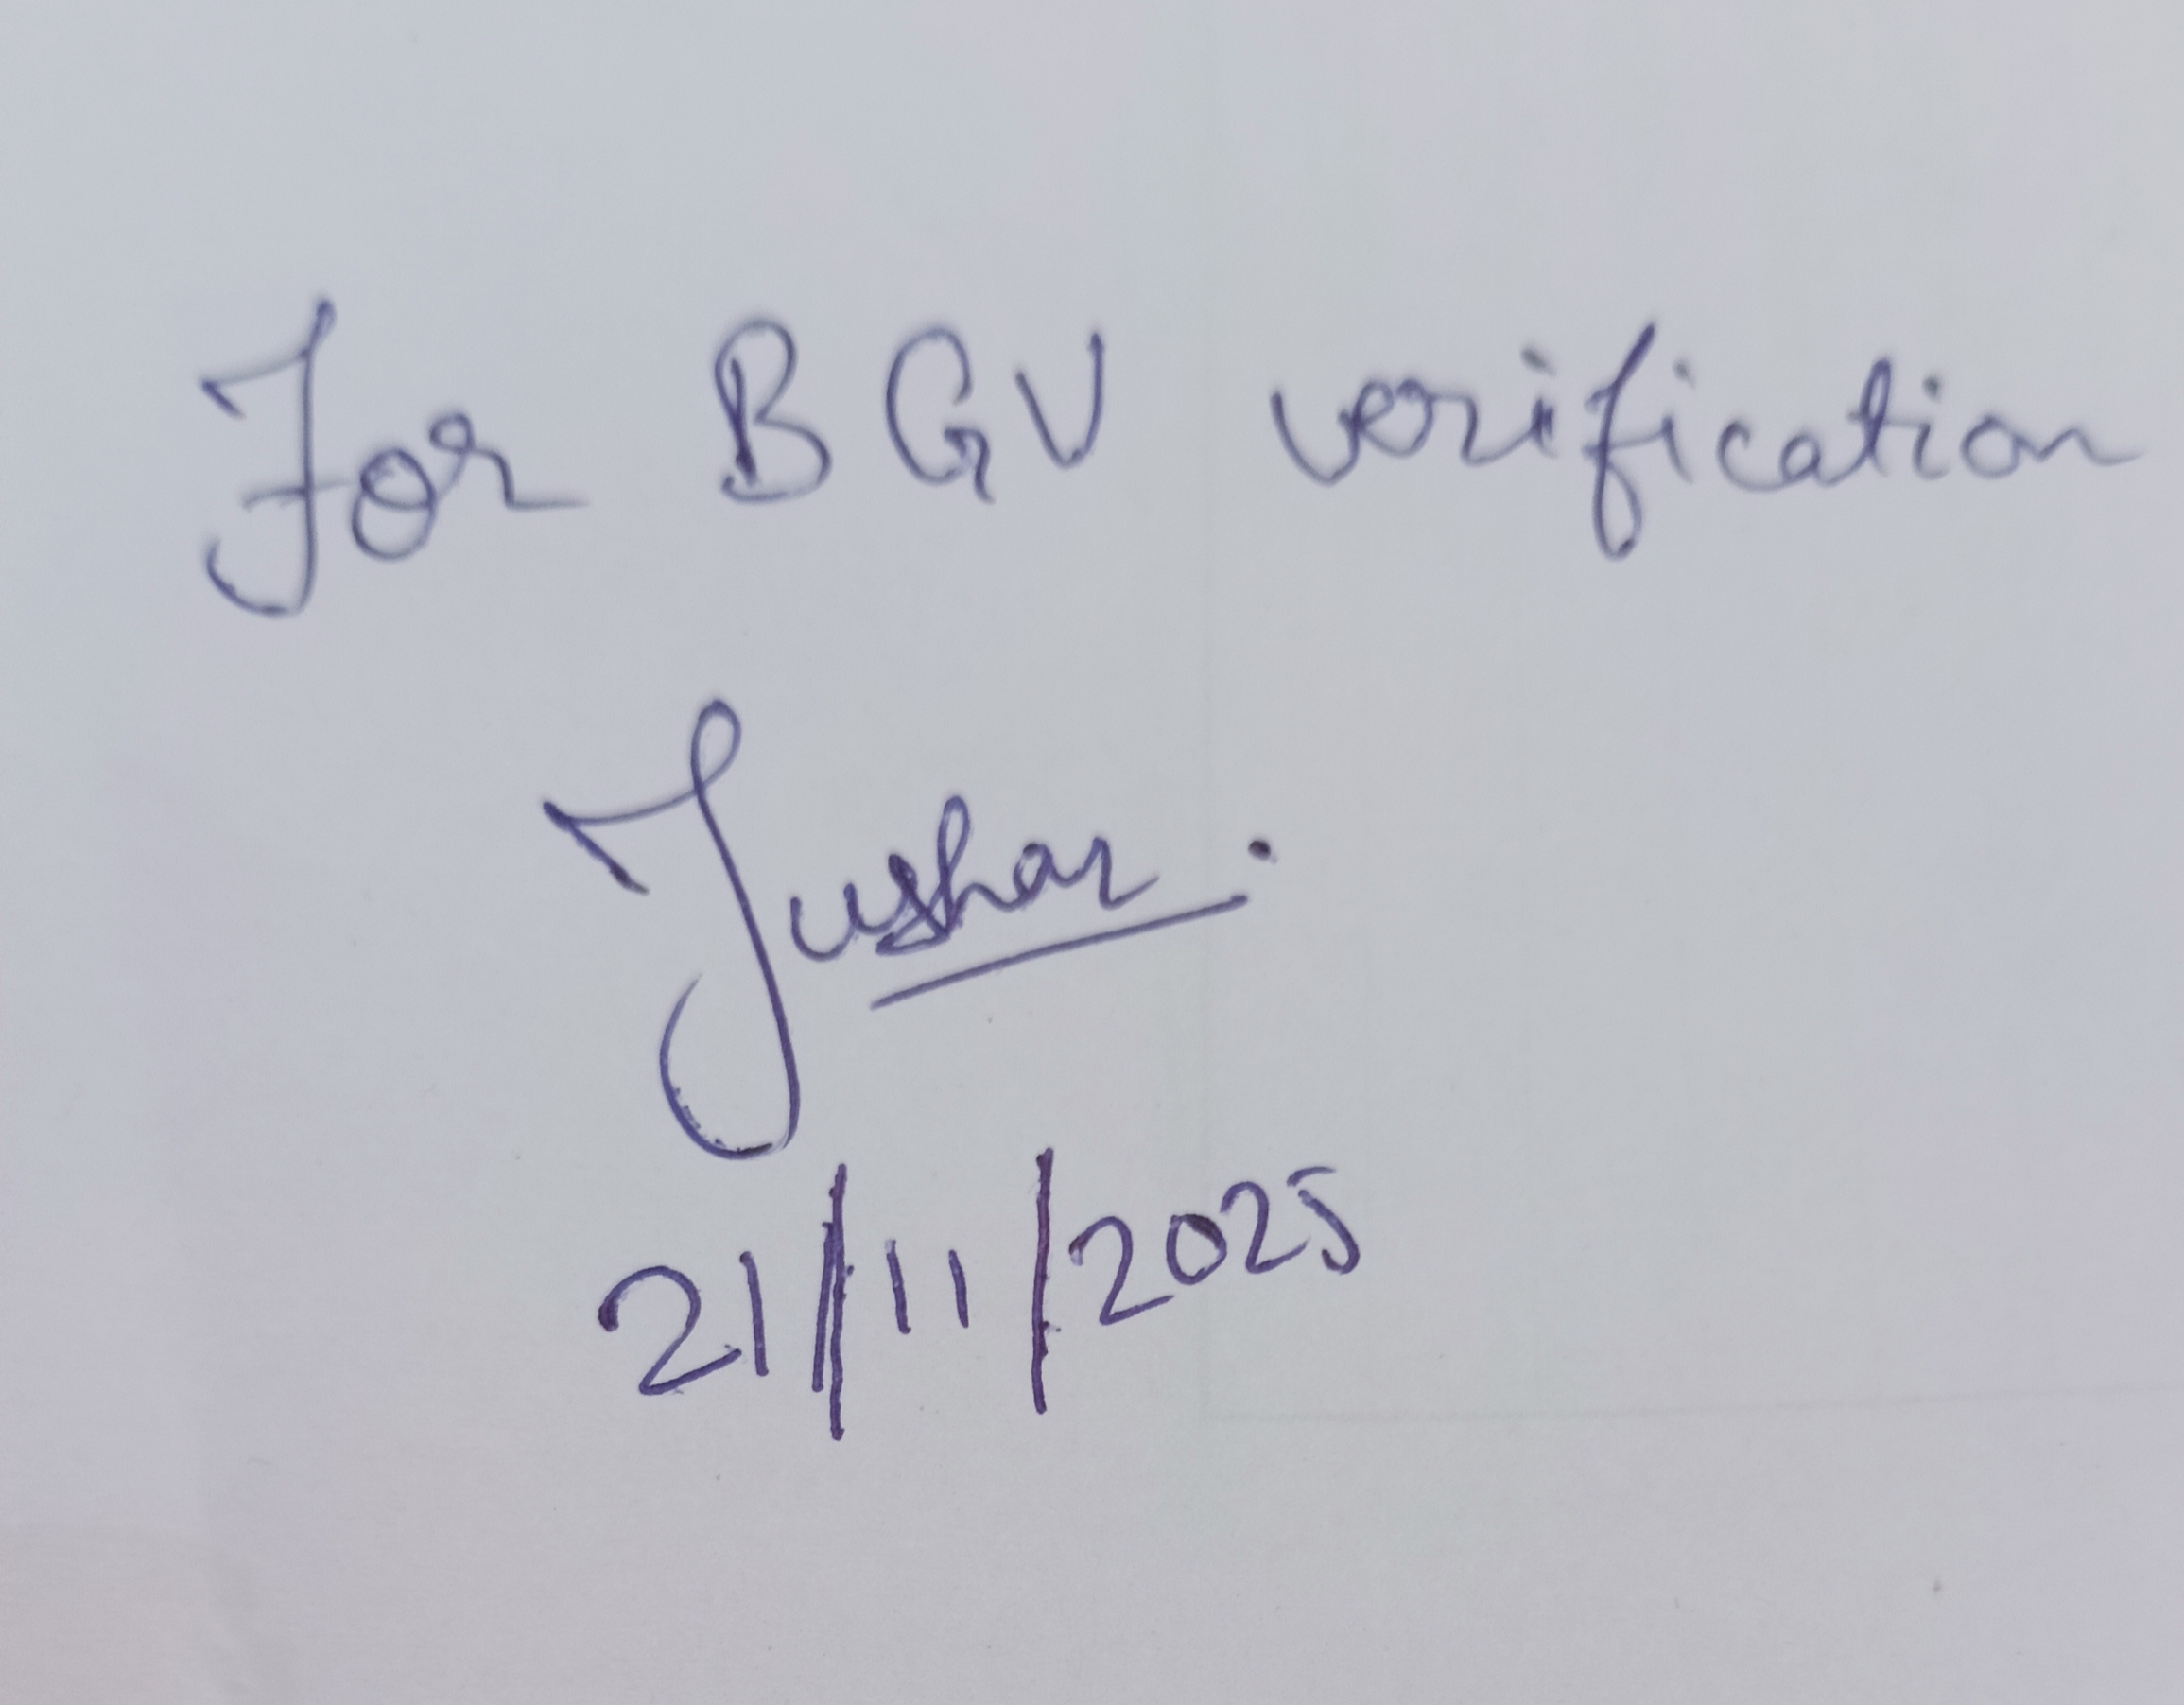 For BGV verification
Tushar.
21/11/2025